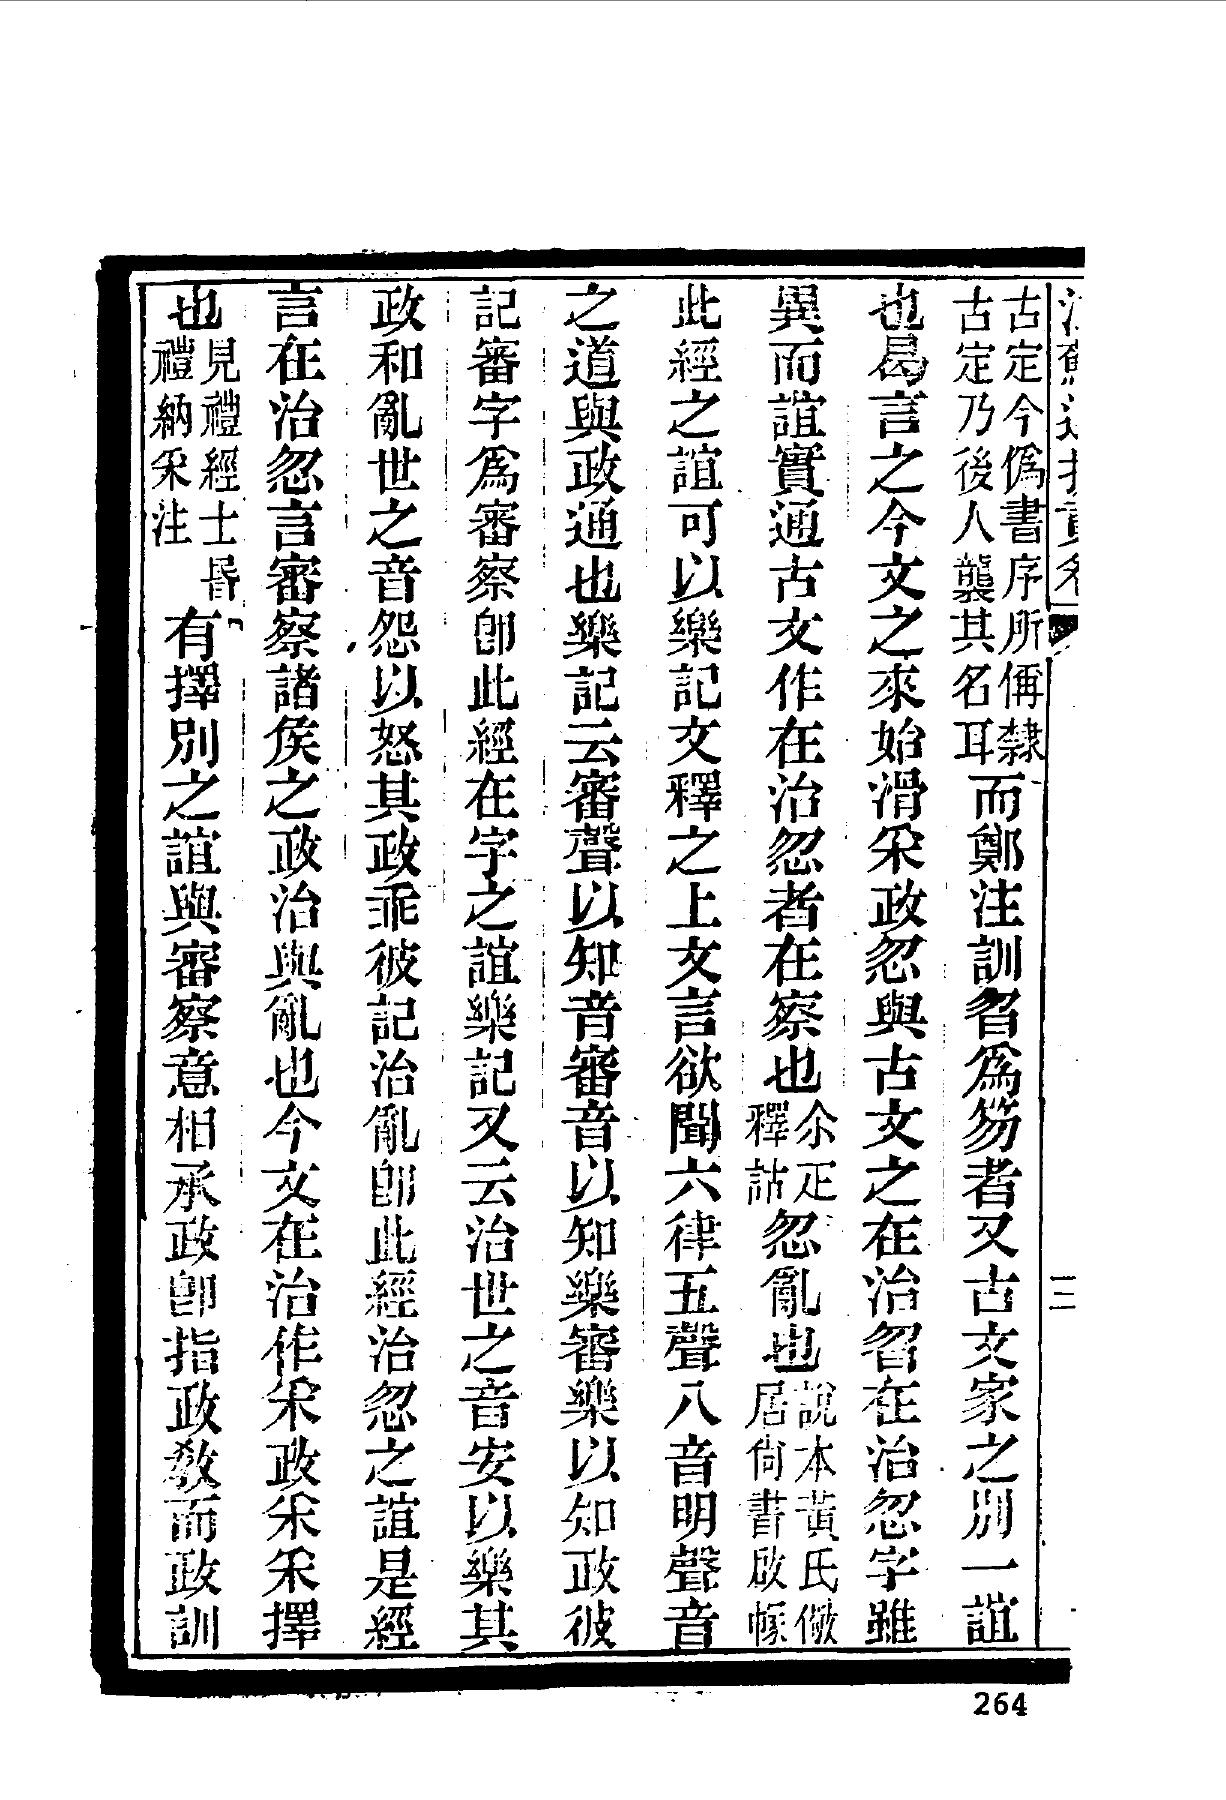 古定今僞書序所偁隸
古定乃後人襲其名耳
而鄭注訓曶爲笏者又古文家之別一誼
也曷言之今文之來始滑采政忽與古文之在治曶在治忽字雖
異而誼實通古文作在治忽者在察也
尒疋
釋詁
忽亂也
說本黃氏儆
居尙書啟幪
此經之誼可以樂記文釋之上文言欲聞六律五聲八音明聲音
之道與政通也樂記云審聲以知音審音以知樂審樂以知政彼
記審字爲審察卽此經在字之誼樂記又云治世之音安以樂其
政和亂世之音怨以怒其政乖彼記治亂卽此經治忽之誼是經
言在治忽言審察諸侯之政治與亂也今文在治作采政采采擇
也
見禮經士昏
禮納采注
有擇別之誼與審察意相承政卽指政敎而政訓
三
264